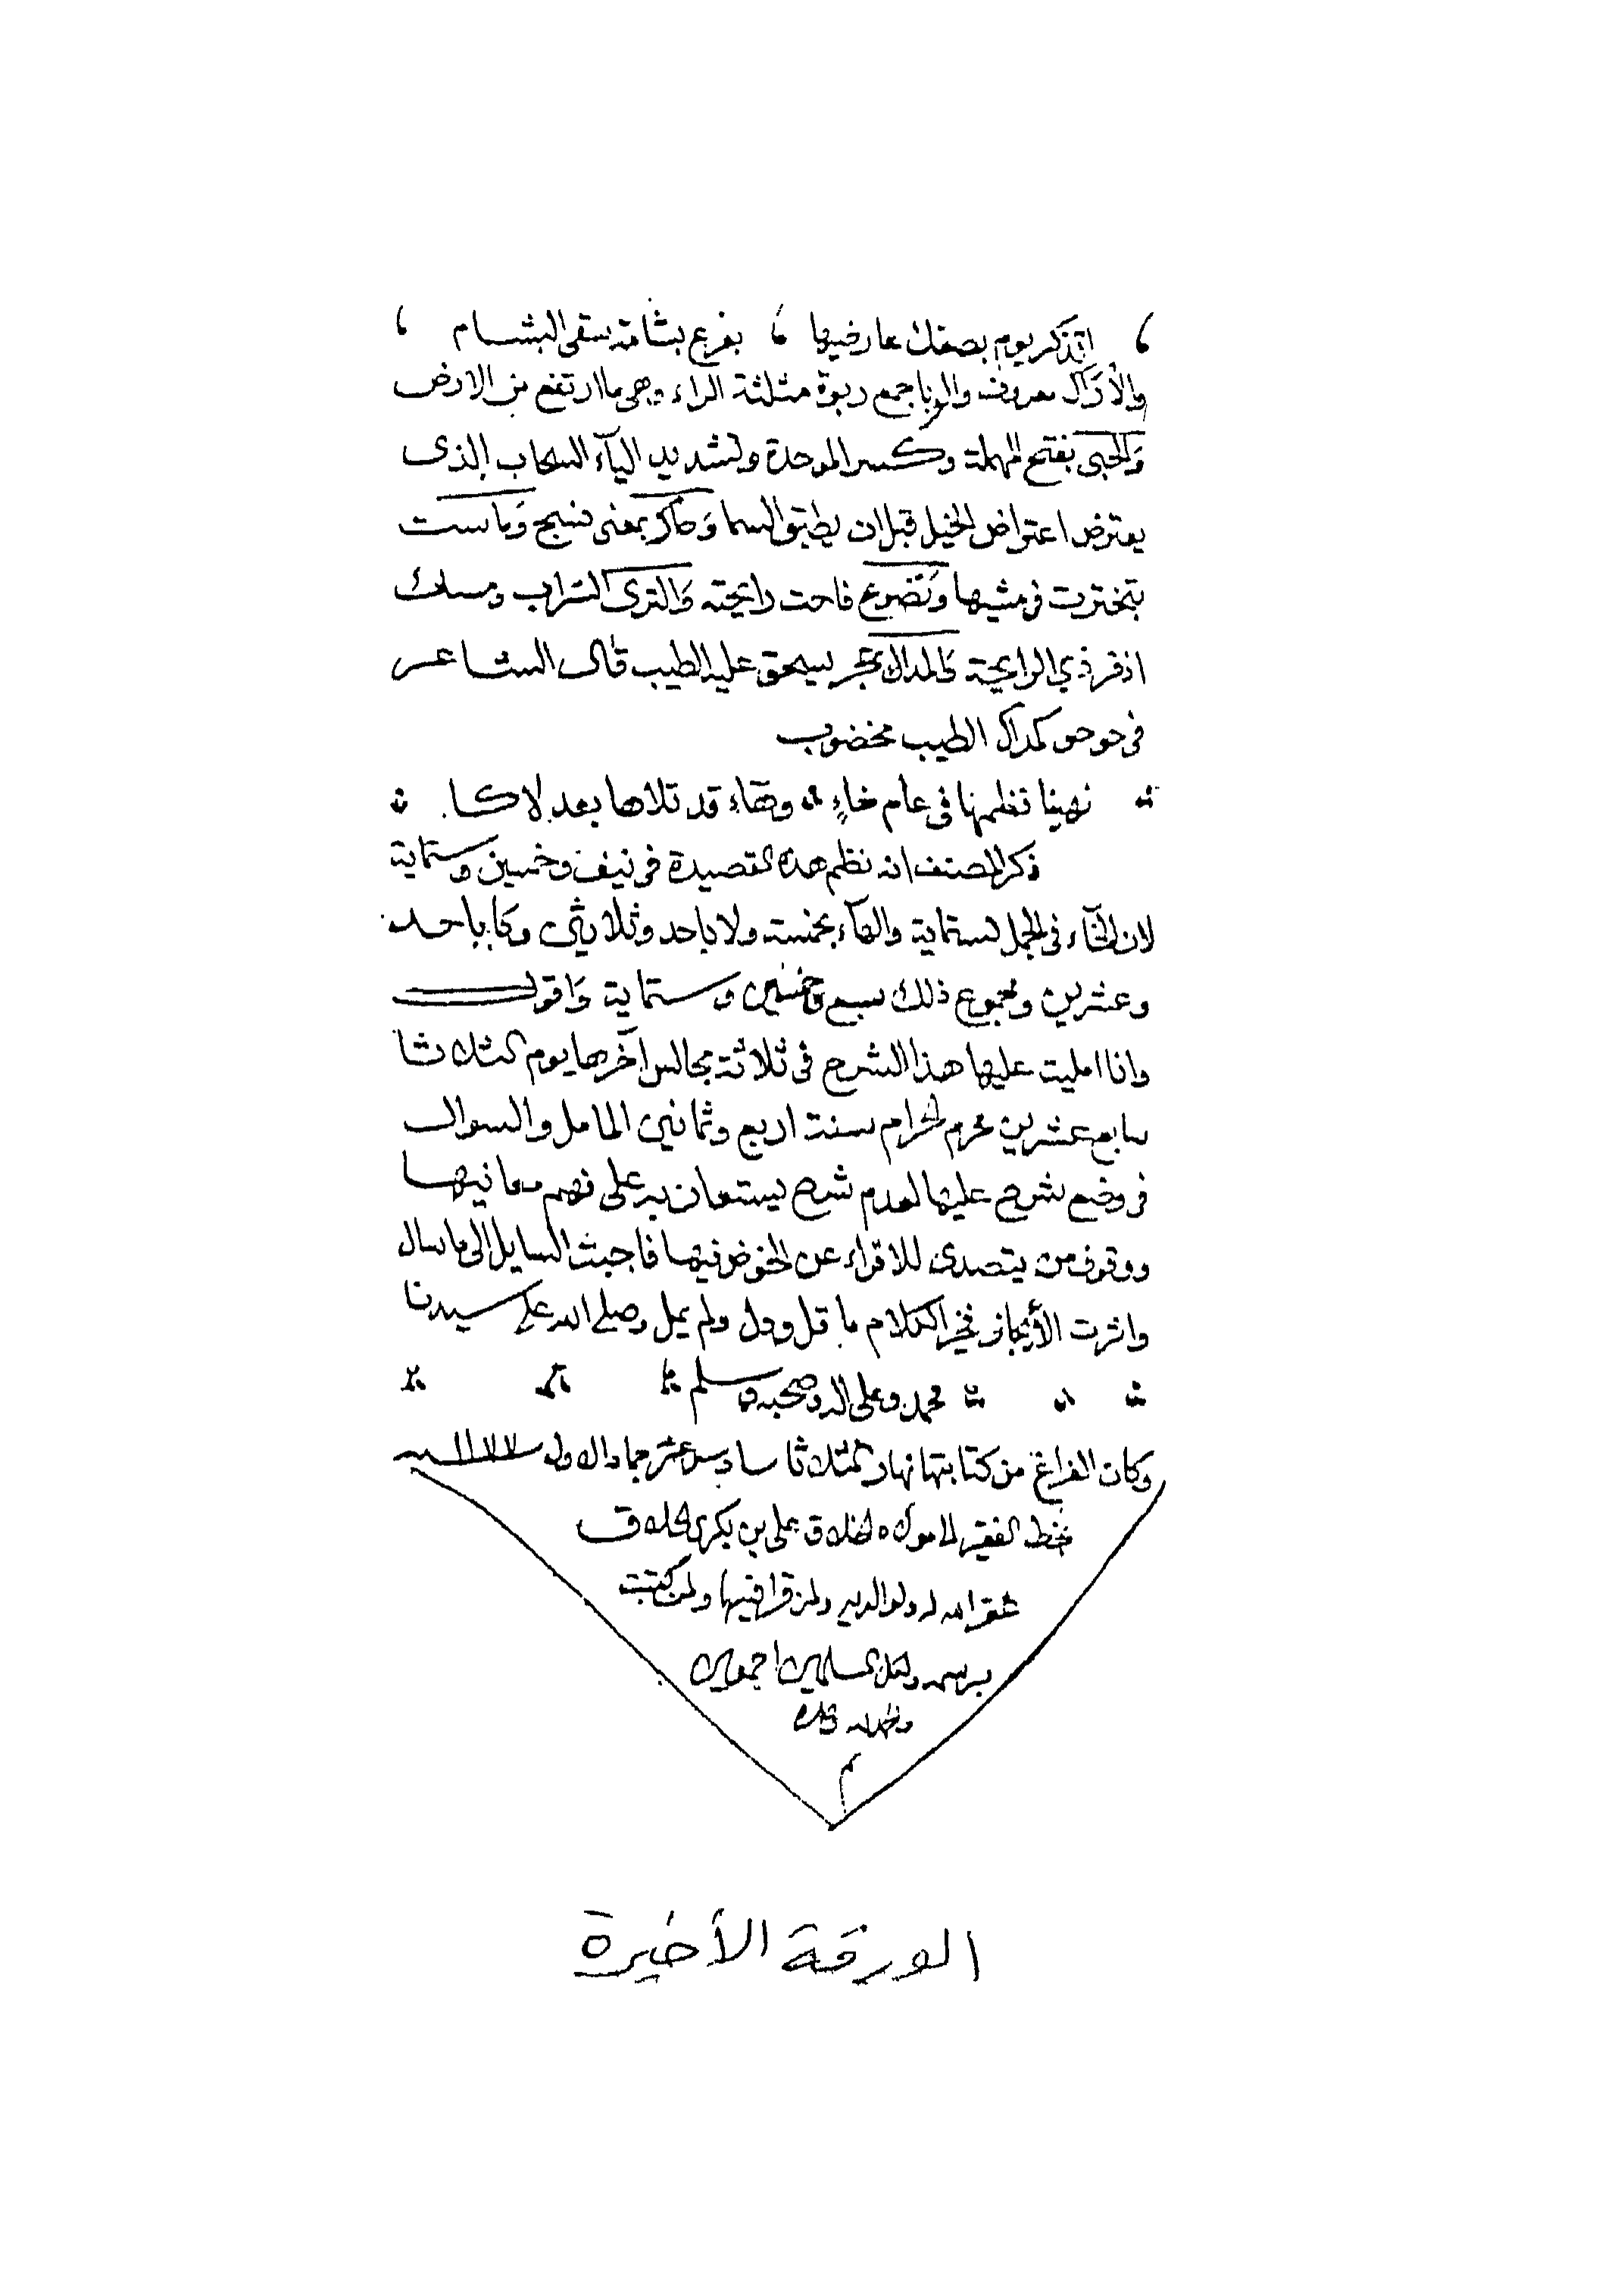 اتذكر يوم بصقل عارضيها ، بفرع بشامة سقى البشام ،
والأراك معروف والربا جمع ربوة مثلثة الراء وهى ما ارتفع من الارض
والحبى بفتح المهملة وكسر الموحدة وتشديد اليآء السحاب الذى
يعترض اعتراض الخيل قبل ان يطبق السما وحاكر بمعنى نسج وماست
تبخترت فى مشيها وتضوع فاحت رايحته والثرى التراب ومسك
اذفر ذى الرايحة والمداك حجر يسحق عليه الطيب قال الشاعر
فى جوجو كمداك الطيب مخضوب
نهينا نظمها فى عام خاءٍ وهاء قد تلاها بعد لا كا
ذكر المصنف انه نظم هذه القصيدة فى نيف وخمسين وستماية
لان الخآء فى الجمل بستماية والهآء بخمسة ولا باحد وثلاثين وكا باحد
وعشرين ومجموع ذلك سبع وخمسين وستماية واقول
وانا امليت عليها هذا الشرح فى ثلاثة مجالس آخرها يوم الثلاثا
سابع عشرين محرم الحرام سنة اربع وثمانين والسوال
فى وضع شرح عليها لعدم شرح يستعان به على فهم معانيها
ووقوف من يتصدى للاقراء عن الخوض فيها فاجبت السايل الى ما سال
واثرت الأيجاز فخير الكلام ما قل ودل ولم يمل وصلى الله على سيدنا
محمد وعلى اله وصحبه وسلم
وكان الفراغ من كتابتها نهار الثلاثا سادس عشر جماد الاول
بخط الفقير على بن بكرى
غفر الله له ولوالديه ولمن قرا فيها ولمن كتبت
برسمه ولكل المسلمين اجمعين
والحمد لله
م
الورقة الأخيرة